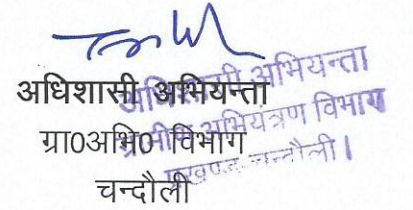 अधिशासी अभियन्ता
ग्रा0अभि0 विभाग
चन्दौली
अधिशासी अभियन्ता
ग्रामीण अभियंत्रण विभाग
प्रखण्ड-चन्दौली।